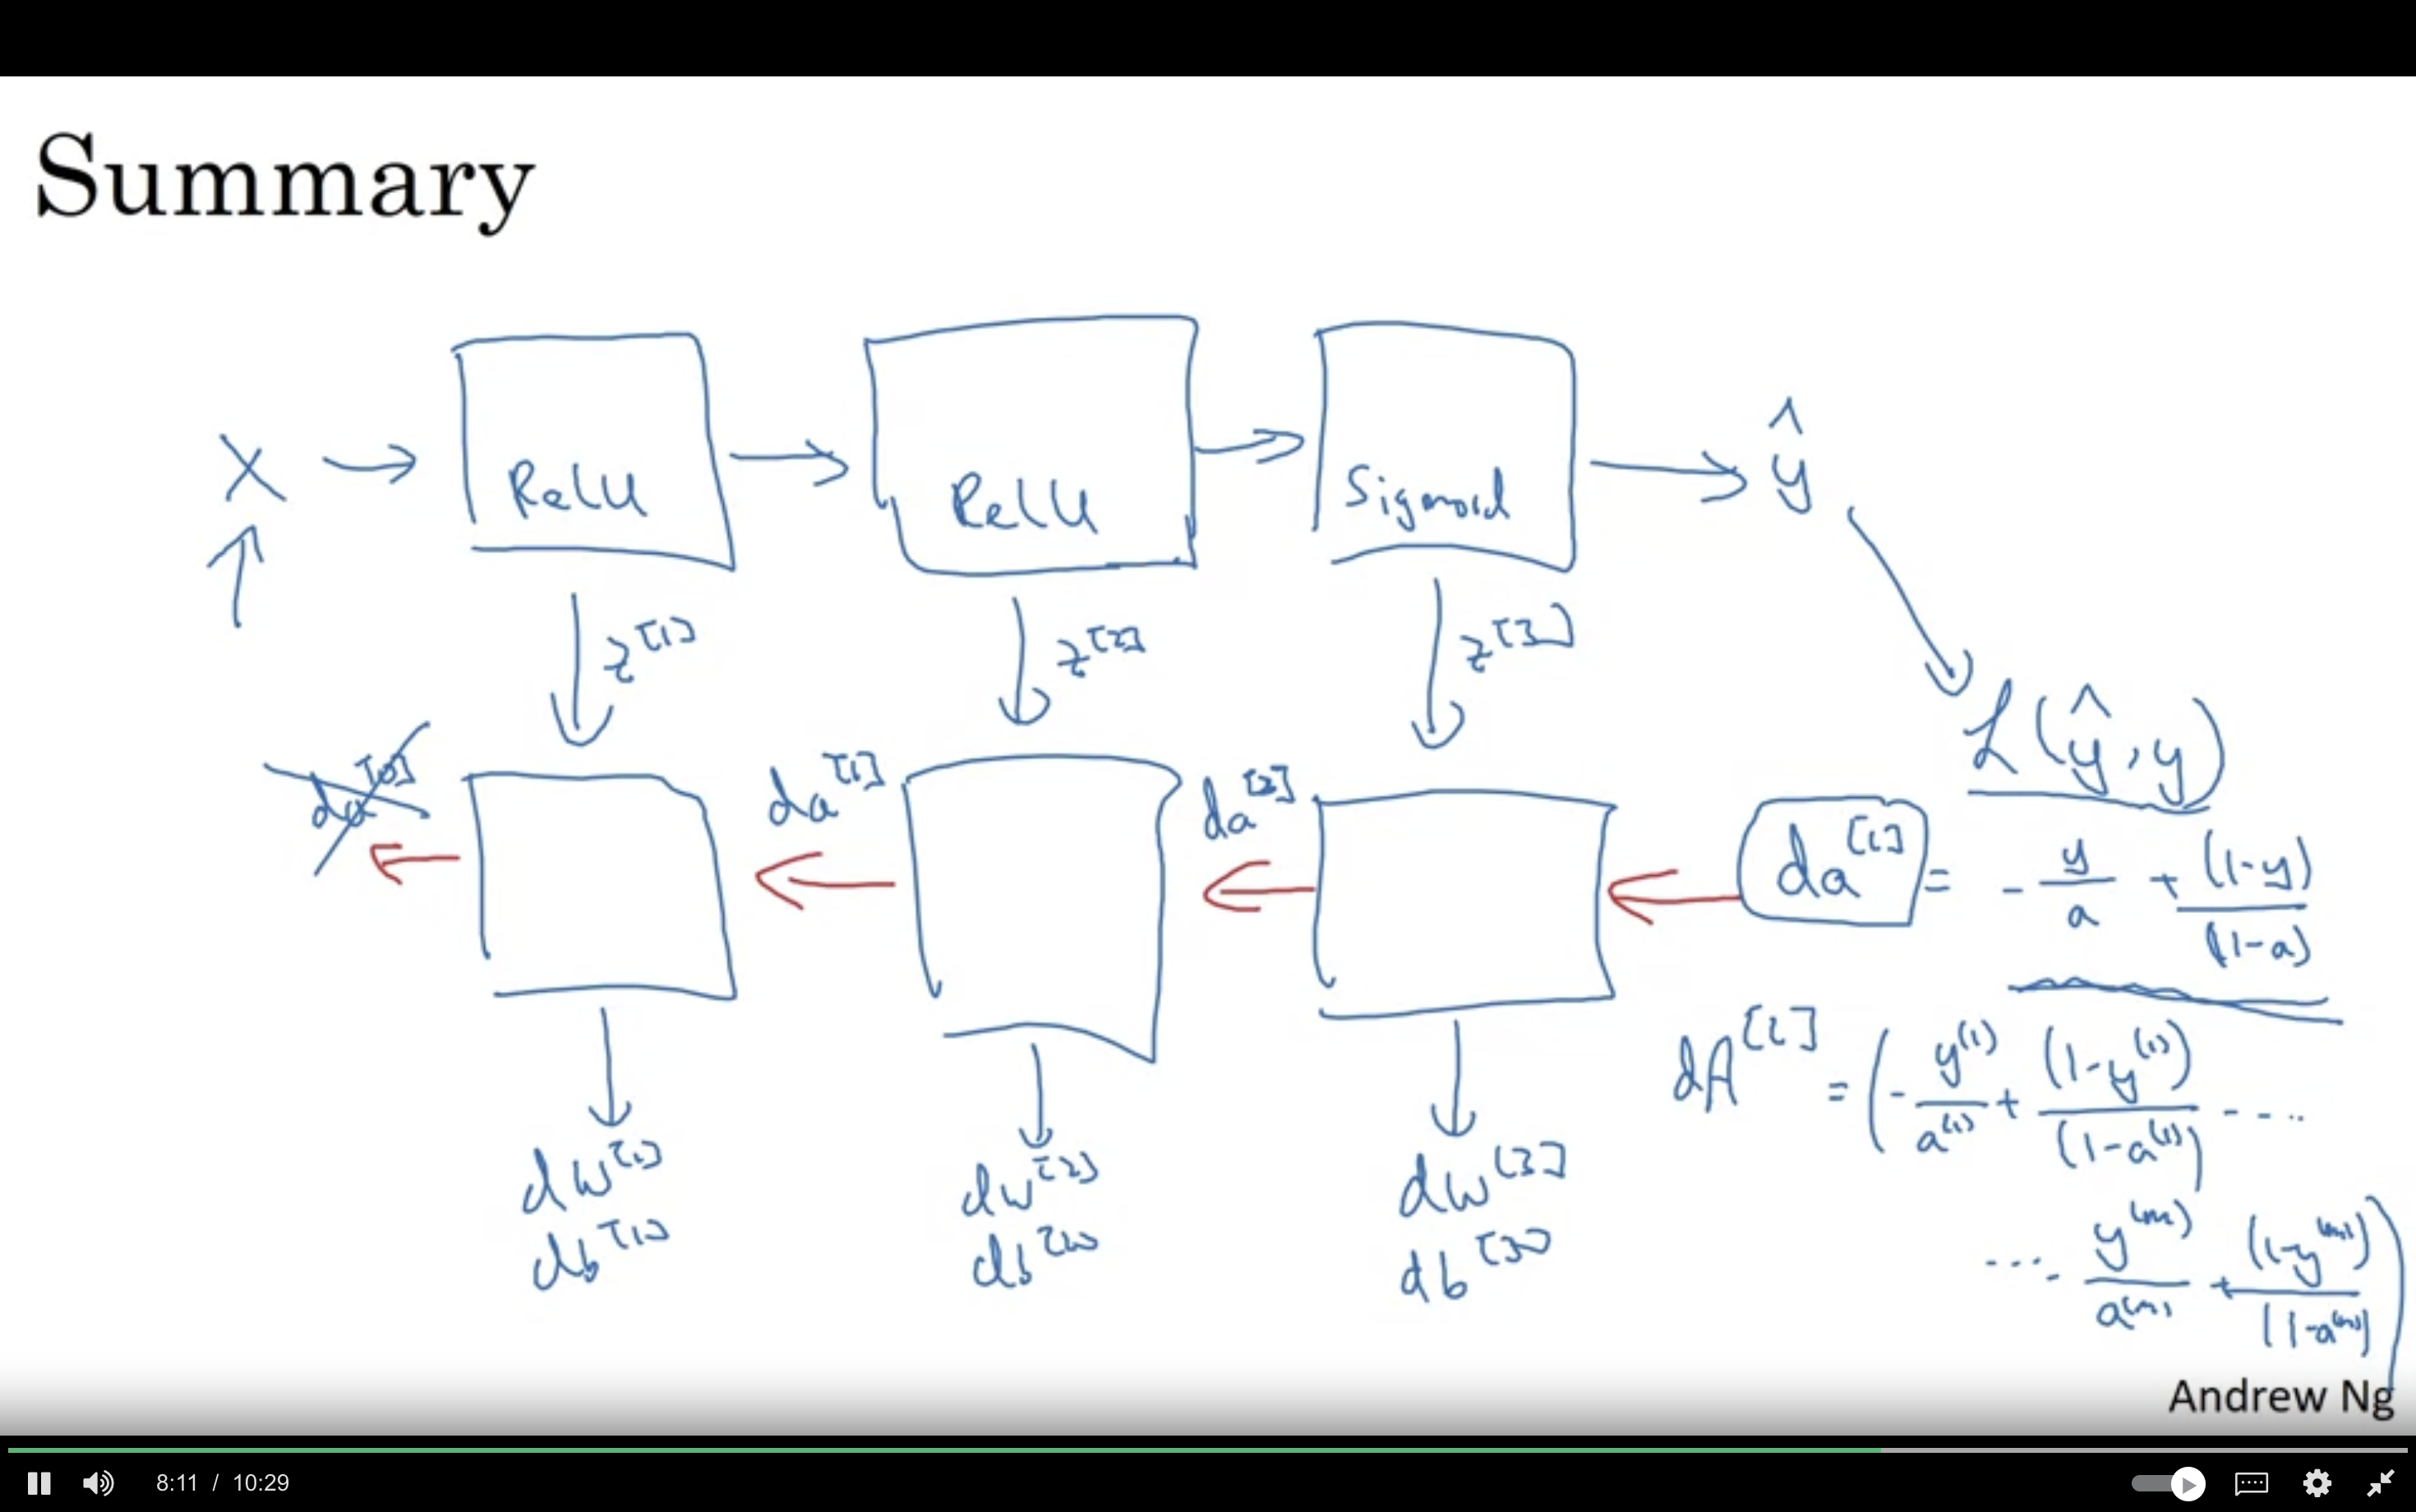 Summary
X → ReLU → ReLU → Sigmoid → ŷ
z^[1] z^[2] z^[3]
L(ŷ, y)
da^[0] da^[1] da^[2] da^[l] = - y/a + (1-y)/(1-a)
dA^[l] = (- y^(1)/a^(1) + (1-y^(1))/(1-a^(1)) ....
.... y^(m)/a^(m) + (1-y^(m))/(1-a^(m)))
dw^[1] dw^[2] dw^[3]
db^[1] db^[2] db^[3]
Andrew Ng
8:11 / 10:29